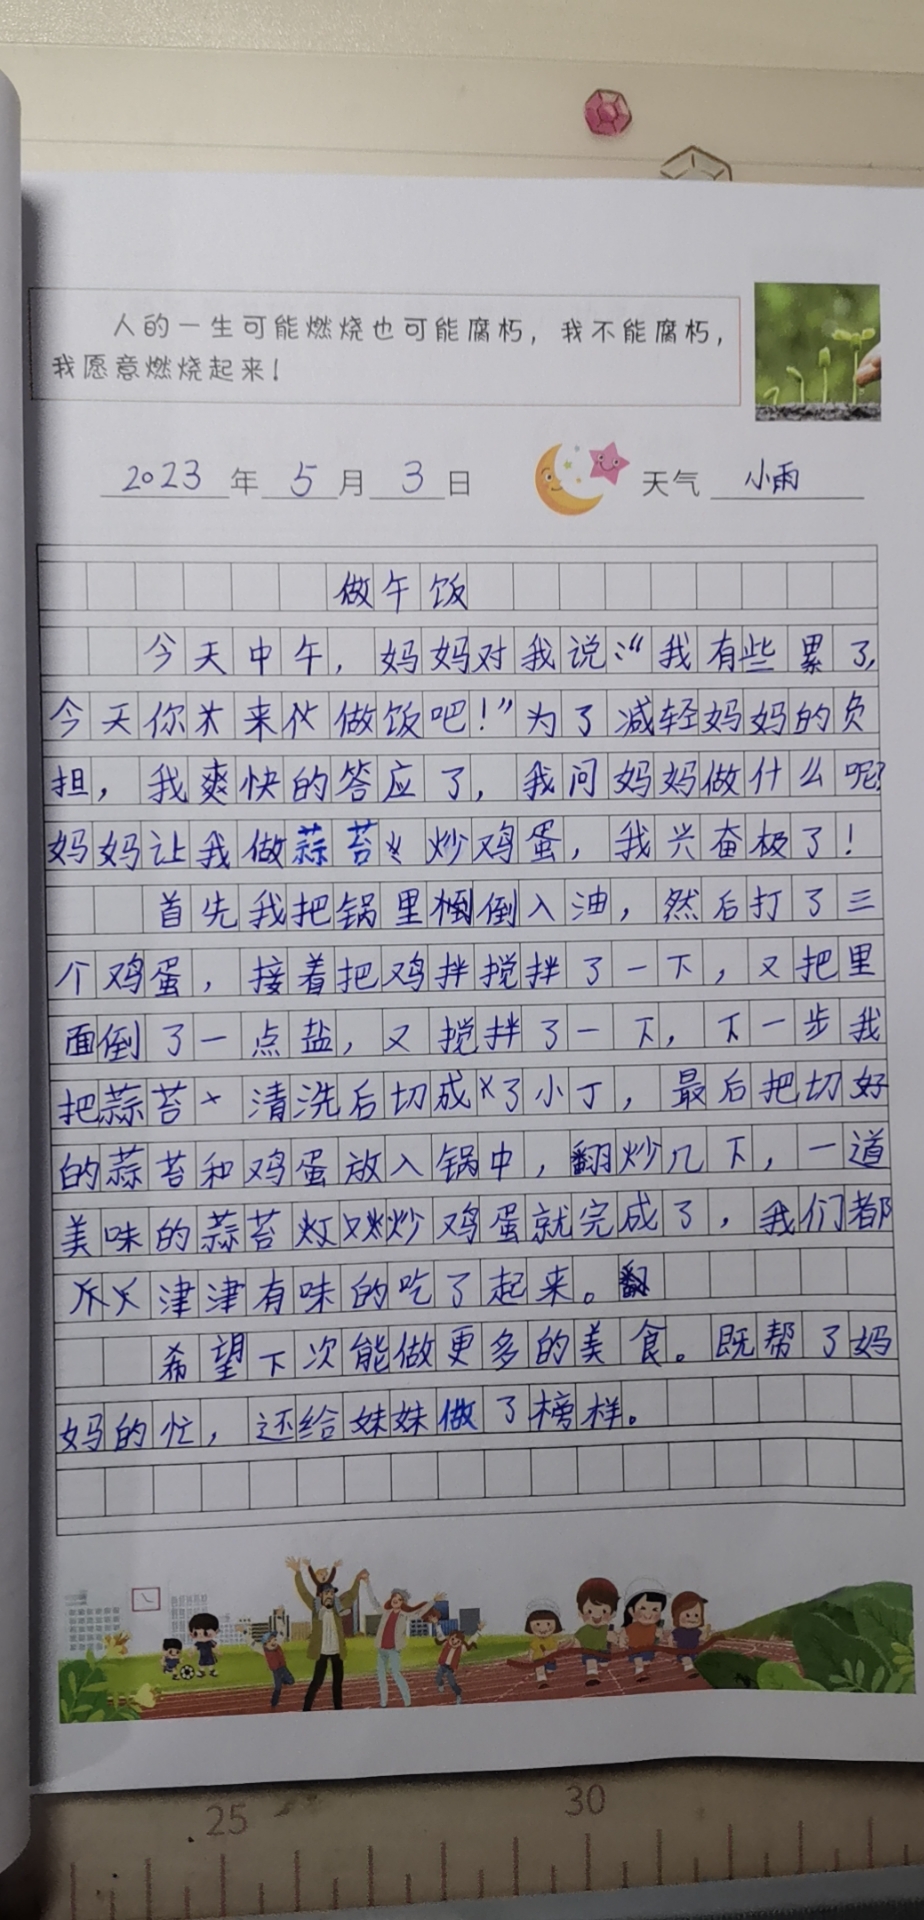 人的一生可能燃烧也可能腐朽，我不能腐朽，
我愿意燃烧起来！
2023年5月3日 天气 小雨
做午饭
今天中午，妈妈对我说：“我有些累了，
今天你来做饭吧！”为了减轻妈妈的负
担，我爽快的答应了，我问妈妈做什么呢？
妈妈让我做蒜苔炒鸡蛋，我兴奋极了！
首先我把锅里倒入油，然后打了三
个鸡蛋，接着把鸡拌搅拌了一下，又把里
面倒了一点盐，又搅拌了一下，下一步我
把蒜苔清洗后切成了小丁，最后把切好
的蒜苔和鸡蛋放入锅中，翻炒几下，一道
美味的蒜苔炒鸡蛋就完成了，我们都
津津有味的吃了起来。
希望下次能做更多的美食。既帮了妈
妈的忙，还给妹妹做了榜样。
25 30